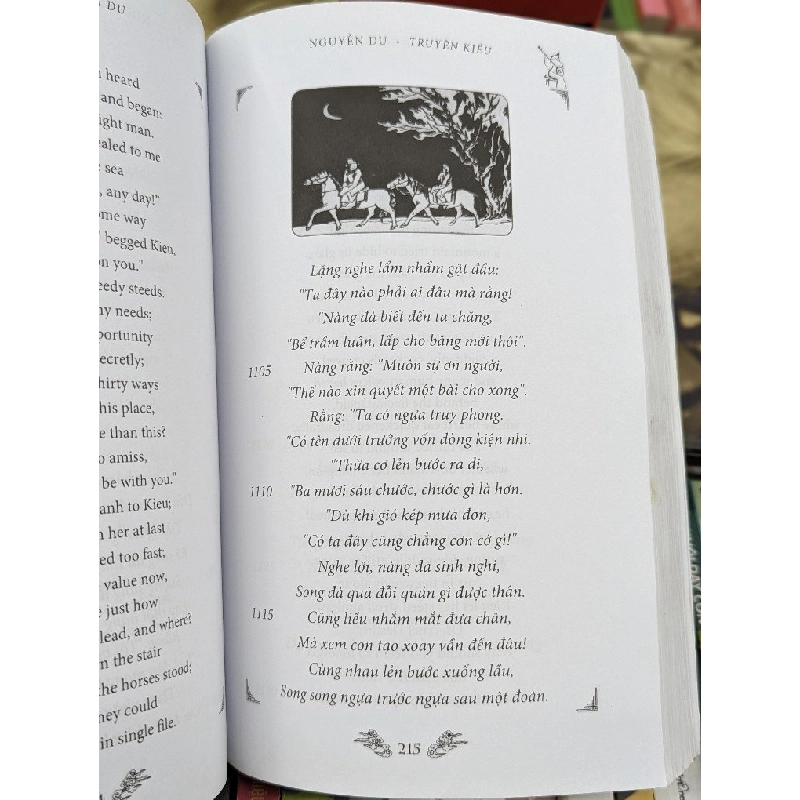 DU
heard
and began:
ight man,
ealed to me
sea
, any day!"
ome way
begged Kieu,
on you."
eedy steeds,
my needs;
portunity
ecretly;
hirty ways
his place,
e than this?
o amiss,
be with you."
anh to Kieu;
n her at last
ed too fast;
value now,
just how
lead, and where?
n the stair
the horses stood;
hey could
in single file.
NGUYỄN DU - TRUYỆN KIỀU
Lắng nghe lẩm nhẩm gật đầu:
"Ta đây nào phải ai đâu mà rằng!
"Nàng đà biết đến ta chăng,
"Bể trầm luân, lấp cho bằng mới thôi".
1105 Nàng rằng: "Muôn sự ơn người,
"Thế nào xin quyết một bài cho xong".
Rằng: "Ta có ngựa truy phong,
"Có tên dưới trướng vốn dòng kiện nhi.
"Thừa cơ lẻn bước ra đi,
1110 "Ba mươi sáu chước, chước gì là hơn.
"Dù khi gió kép mưa đơn,
"Có ta đây cũng chẳng cơn cớ gì!"
Nghe lời, nàng đã sinh nghi,
Song đà quá đỗi quản gì được thân.
1115 Cũng liều nhắm mắt đưa chân,
Mà xem con tạo xoay vần đến đâu!
Cùng nhau lẻn bước xuống lầu,
Song song ngựa trước ngựa sau một đoàn.
215